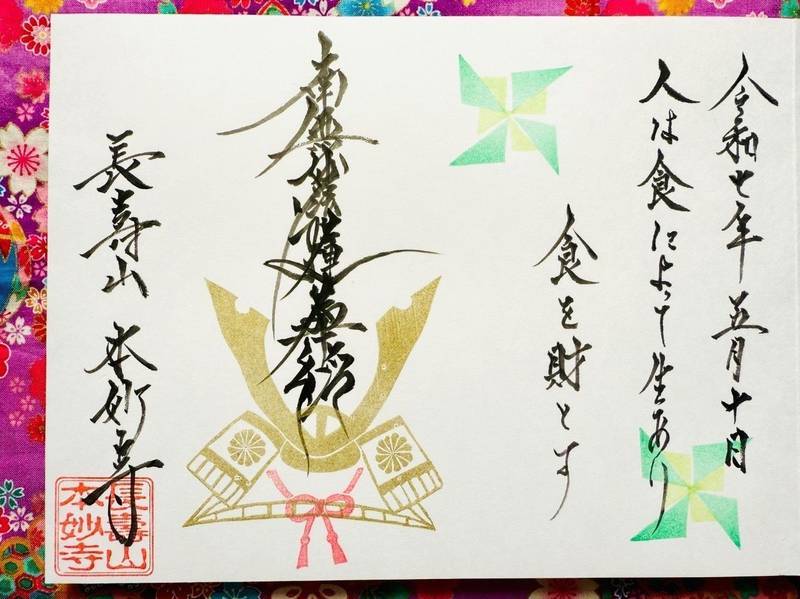 令和七年五月十日
人は食によって生あり
食を財とす
南無妙法蓮華経
長寿山 本妙寺
長壽山
本妙寺